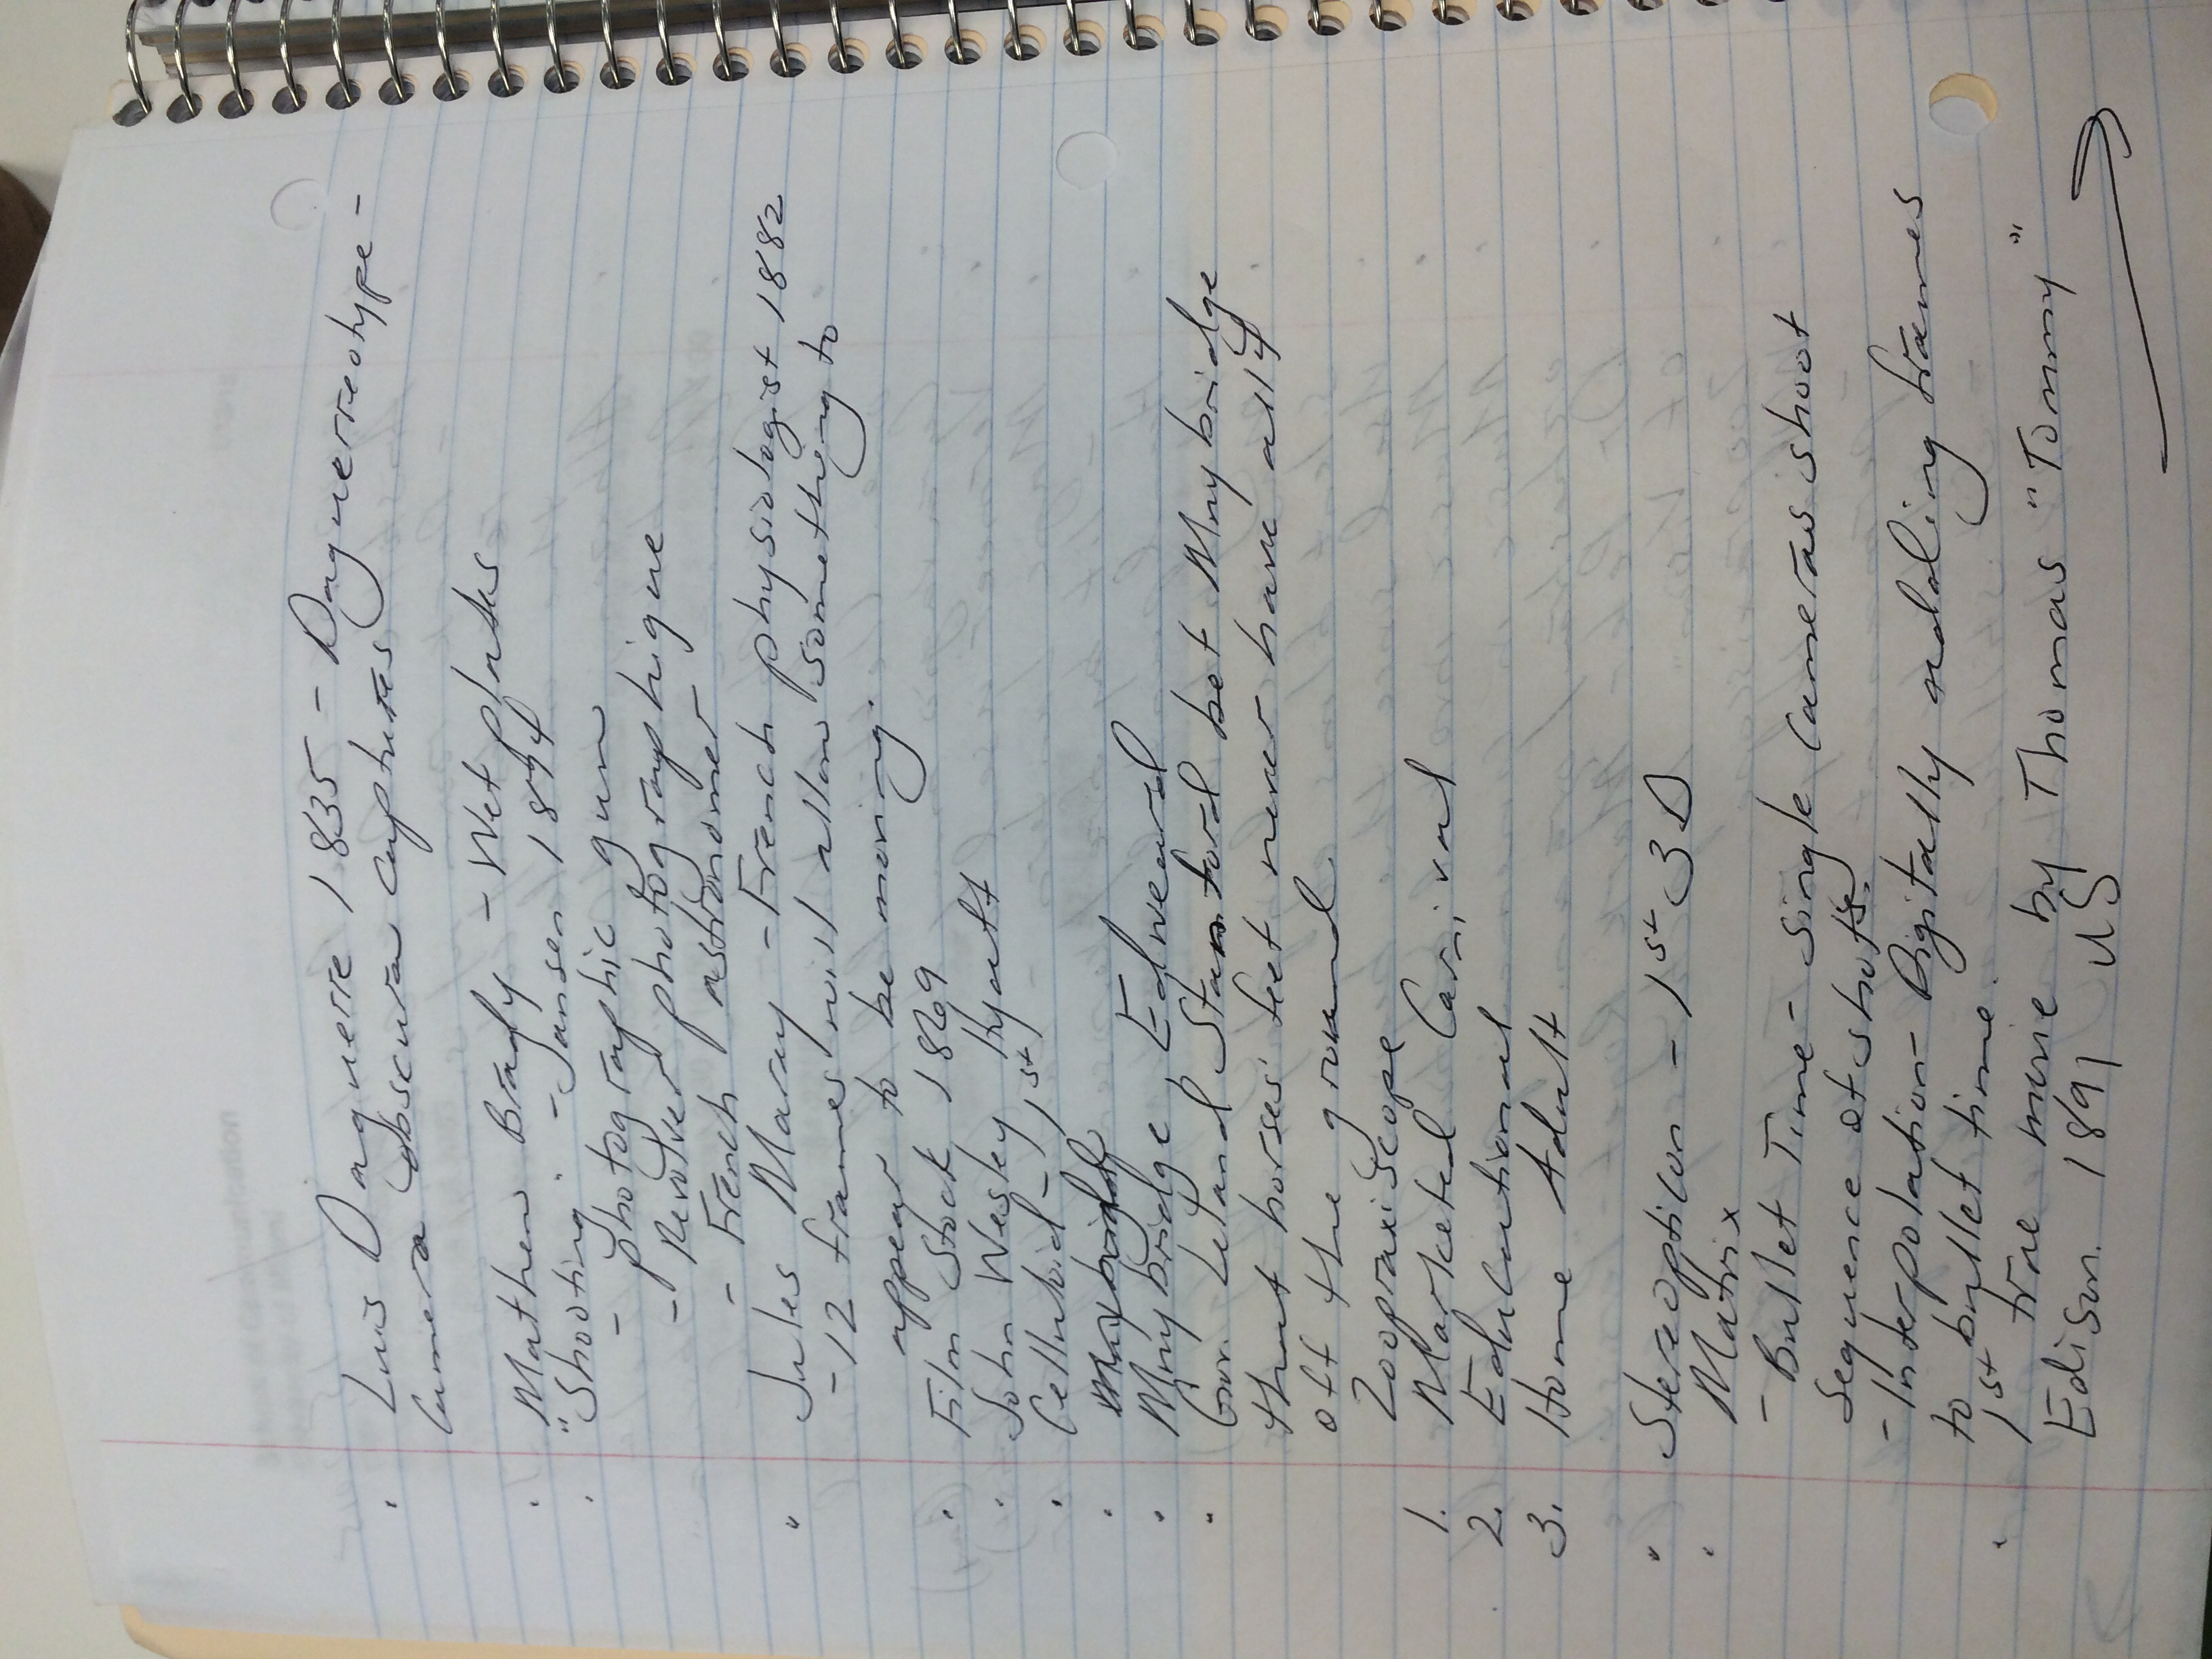 · Luis Daguerre 1835 - Daguerreotype -
Camera obscura captures
· Mathew Brady - Wet plates
· "Shooting" - Jansen 1874
- photographic gun
- Revolver photographique
- French astronomer
· Jules Maray - French physiologist 1882
- 12 frames will allow something to
appear to be moving.
· Film Stock 1869
· John Wesley Hyatt
· Celluloid - 1st
· Muybridge, Edweard
· Gov. Leland Stanford bet Muybridge
that horses' feet never have all 4
off the ground.
Zoopraxiscope
1. Marketed Carnival
2. Educational
3. Home Adult
· Stereopticon - 1st 3D
· Matrix
- Bullet Time - single cameras shoot
sequence of shots.
- Interpolation - Digitally adding frames
to bullet time.
· 1st true movie by Thomas "Tommy"
Edison. 1891 US